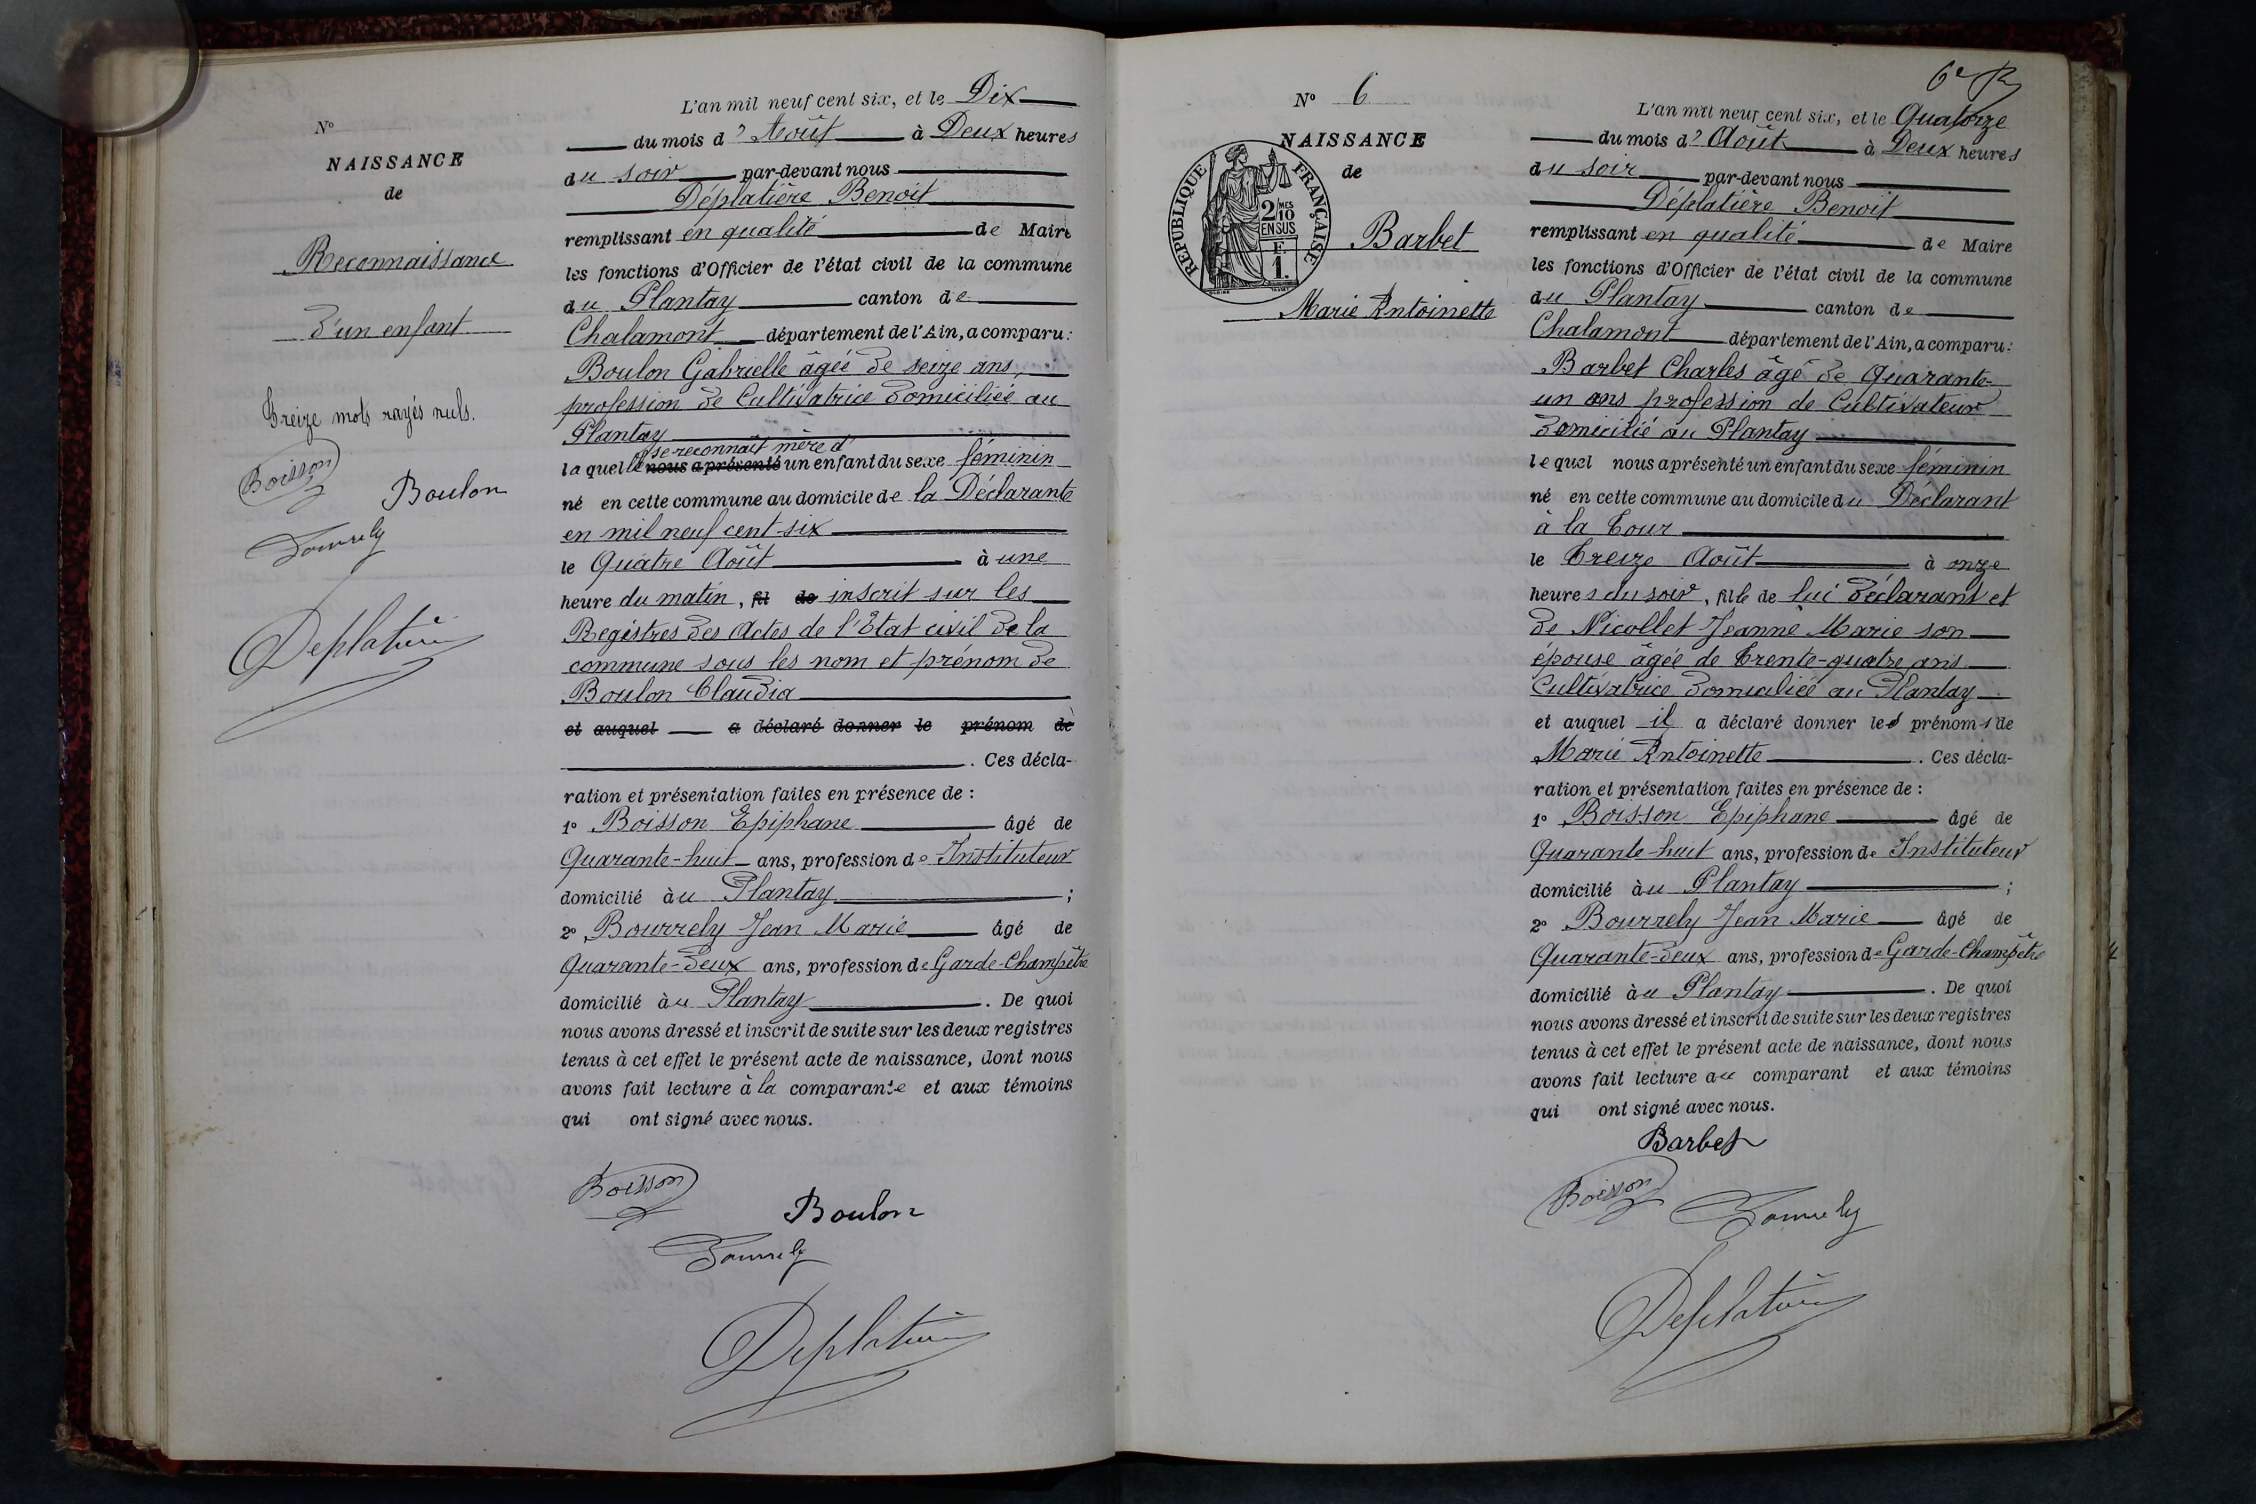 N°
NAISSANCE
de
Reconnaissance
d'un enfant
Treize mots rayés nuls.
Boisson
Boulon
Bourrely
Déplatière
L'an mil neuf cent six, et le Dix
du mois d'Août à Deux heures
du soir par-devant nous
Déplatière Benoit
remplissant en qualité de Maire
les fonctions d'Officier de l'état civil de la commune
du Plantay canton de
Chalamont département de l'Ain, a comparu :
Boulon Gabrielle âgée de seize ans,
profession de Cultivatrice domiciliée au
Plantay
se reconnaît mère d'
laquelle nous a présenté un enfant du sexe féminin
né en cette commune au domicile de la Déclarante
en mil neuf cent six
le Quatre Août à une
heure du matin, fil de inscrit sur les
Registres des Actes de l'Etat civil de la
commune sous les nom et prénom de
Boulon Claudia
et auquel a déclaré donner le prénom de
. Ces décla-
ration et présentation faites en présence de :
1° Boisson Epiphane âgé de
Quarante-huit ans, profession de Instituteur
domicilié àu Plantay ;
2° Bourrely Jean Marie âgé de
Quarante-deux ans, profession de Garde-Champêtre
domicilié àu Plantay . De quoi
nous avons dressé et inscrit de suite sur les deux registres
tenus à cet effet le présent acte de naissance, dont nous
avons fait lecture à la comparante et aux témoins
qui ont signé avec nous.
Boisson
Boulon
Bourrely
Déplatière
6e R
N° 6
NAISSANCE
de
REPUBLIQUE FRANÇAISE
2/10 MES
EN SUS
F.
1.
Barbet
Marie Antoinette
L'an mil neuf cent six, et le Quatorze
du mois d'Août à Deux heures
du soir par-devant nous
Déplatière Benoit
remplissant en qualité de Maire
les fonctions d'Officier de l'état civil de la commune
du Plantay canton de
Chalamont département de l'Ain, a comparu :
Barbet Charles âgé de Quarante-
un ans profession de Cultivateur
domicilié au Plantay
lequel nous a présenté un enfant du sexe féminin
né en cette commune au domicile du Déclarant
à la Tour
le Treize Août à onze
heures du soir, fille de lui déclarant et
de Nicollet Jeanne Marie son
épouse âgée de Trente-quatre ans
Cultivatrice domiciliée au Plantay
et auquel il a déclaré donner les prénoms de
Marie Antoinette . Ces décla-
ration et présentation faites en présence de :
1° Boisson Epiphane âgé de
Quarante-huit ans, profession de Instituteur
domicilié àu Plantay ;
2° Bourrely Jean Marie âgé de
Quarante-deux ans, profession de Garde-Champêtre
domicilié àu Plantay . De quoi
nous avons dressé et inscrit de suite sur les deux registres
tenus à cet effet le présent acte de naissance, dont nous
avons fait lecture au comparant et aux témoins
qui ont signé avec nous.
Barbet
Boisson
Bourrely
Déplatière